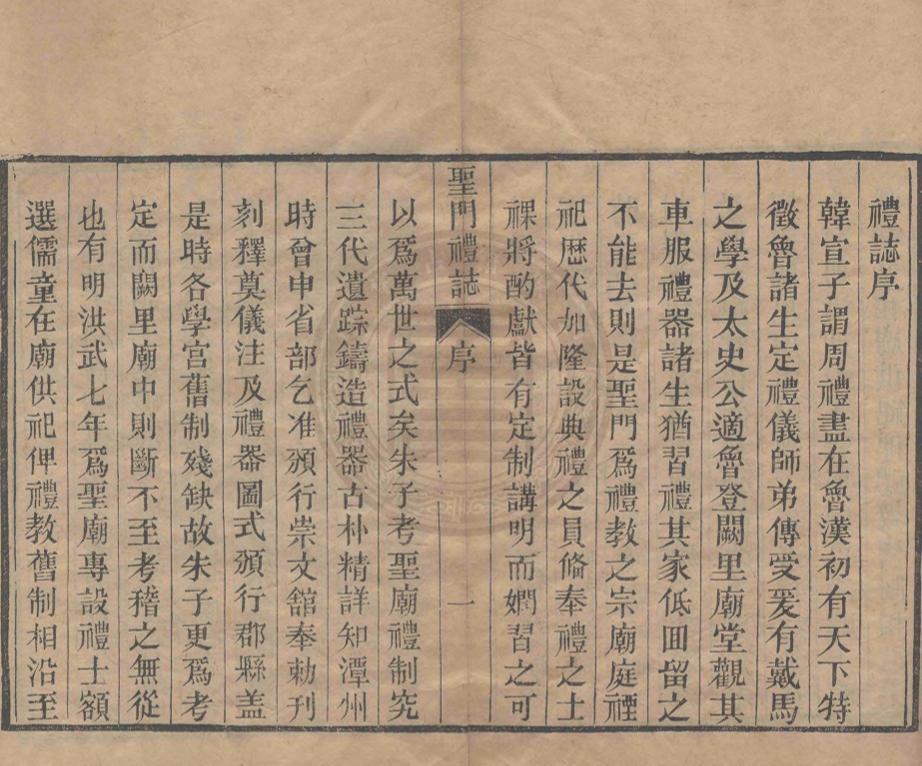 禮誌序
韓宣子謂周禮盡在魯漢初有天下特
徵魯諸生定禮儀師弟傳受爰有戴馬
之學及太史公適魯登闕里廟堂觀其
車服禮器諸生猶習禮其家低囬留之
不能去則是聖門爲禮教之宗廟庭禋
祀歷代加隆設典禮之員脩奉禮之士
祼將酌獻皆有定制講明而嫻習之可
聖門禮誌 序 一
以爲萬世之式矣朱子考聖廟禮制究
三代遺踪鑄造禮器古朴精詳知潭州
時曾申省部乞准頒行崇文舘奉勅刋
刻釋奠儀注及禮器圖式頒行郡縣盖
是時各學宮舊制殘缺故朱子更爲考
定而闕里廟中則斷不至考稽之無從
也有明洪武七年爲聖廟專設禮士額
選儒童在廟供祀俾禮教舊制相沿至